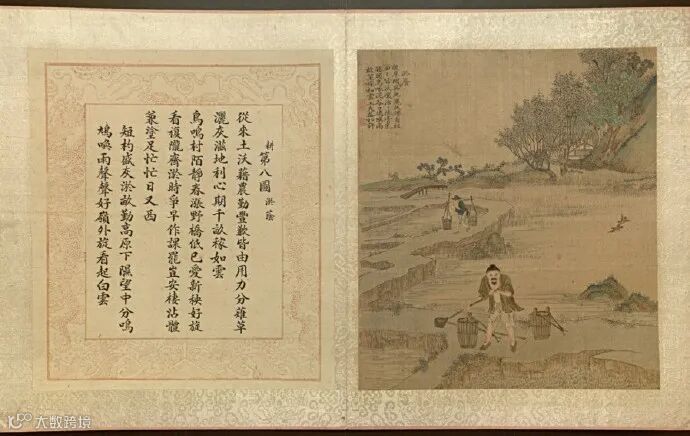 耕 第八圖 淤蔭
從來土沃藉農勤豐歉皆由用力分薙草
灑灰滋地利心期千畝稼如雲
鳥鳴村陌靜春漲野橋低已愛新秧好旋
看複隴齊淤時爭早作課罷豈安棲沾體
兼塗足忙忙日又西
短杓盛灰淤畝勤高原下隰望中分鳴
鳩喚雨聲聲好嶺外旋看起白雲
淤蔭
大数跨境